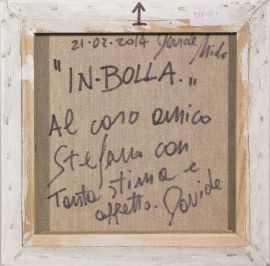 21-02-2014 Davide
"IN-BOLLA."
Al caro amico
Stefano con
Tanta stima e
affetto. Davide